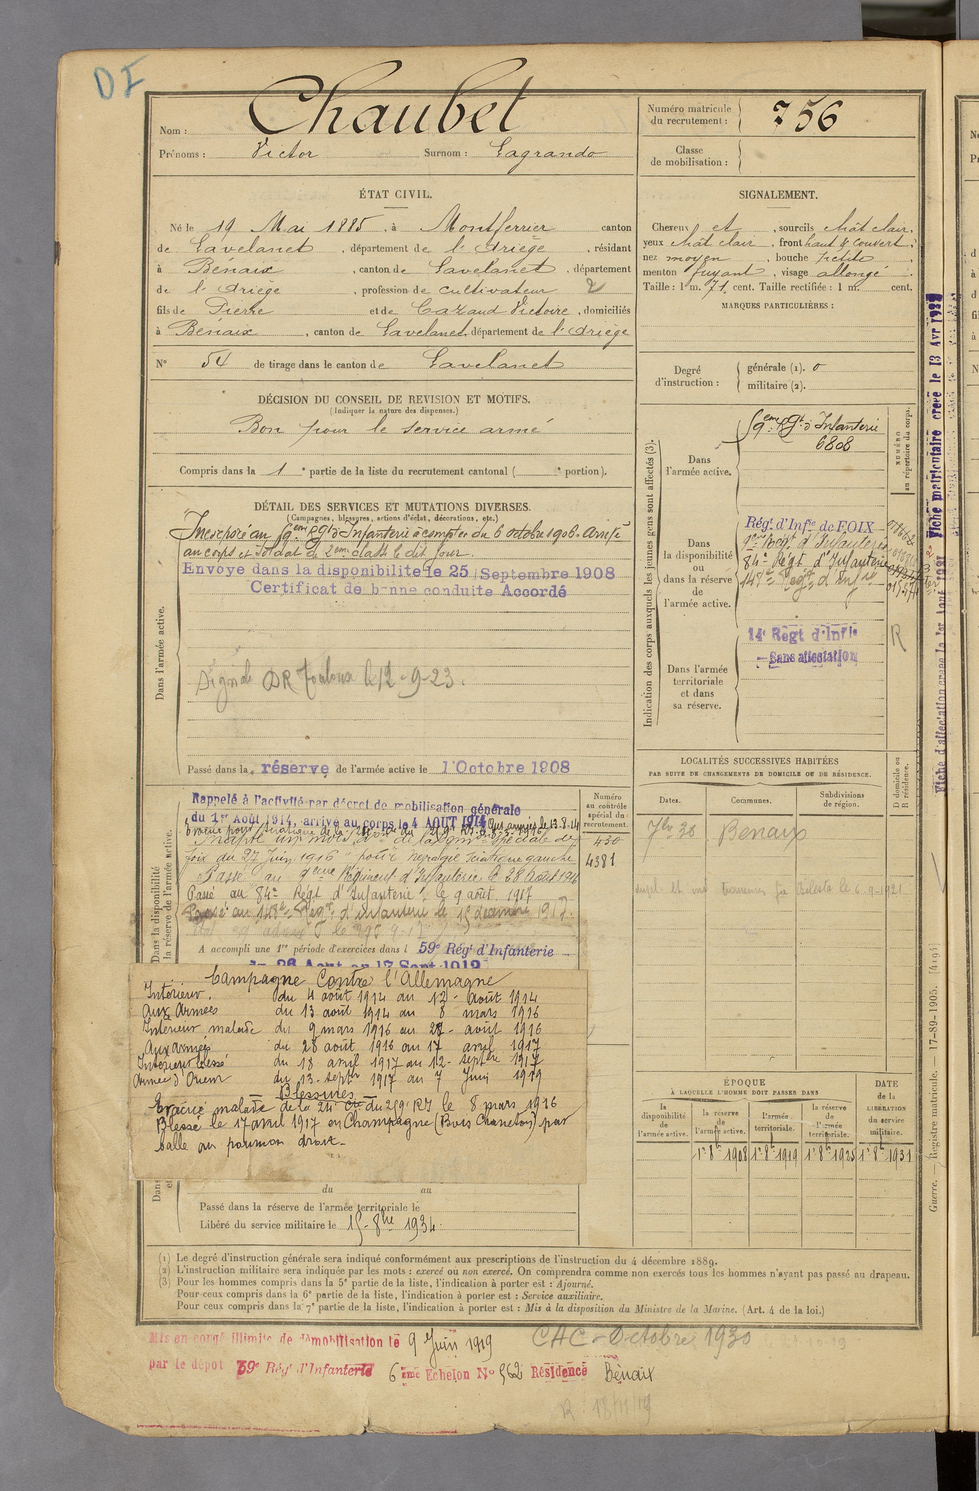 DF
Nom : Chaubet
Prénoms : Victor Surnom : Lagrando
Numéro matricule du recrutement : 756
Classe de mobilisation :
ÉTAT CIVIL.
Né le 19 Mai 1885, à Montferrier canton
de Lavelanet, département de l'Ariège, résidant
à Bénaix, canton de Lavelanet, département
de l'Ariège, profession de cultivateur 2
fils de Pierre et de Cazaud Victoire, domiciliés
à Bénaix, canton de Lavelanet, département de l'Ariège
N° 54 de tirage dans le canton de Lavelanet
SIGNALEMENT.
Cheveux et, sourcils chât clair,
yeux chât clair, front haut & couvert,
nez moyen, bouche petite,
menton fuyant, visage allongé.
Taille : 1 m. 71 cent. Taille rectifiée : 1 m. cent.
MARQUES PARTICULIÈRES :
Degré d'instruction : générale (1). 0
militaire (2).
DÉCISION DU CONSEIL DE REVISION ET MOTIFS.
(Indiquer la nature des dispenses.)
Bon pour le service armé
Compris dans la 1e partie de la liste du recrutement cantonal ( e portion).
DÉTAIL DES SERVICES ET MUTATIONS DIVERSES.
(Campagnes, blessures, actions d'éclat, décorations, etc.)
Incorporé au 59eme Rgt d'Infanterie à compter du 6 octobre 1906. Arrivé
au corps et soldat de 2eme classe le dit jour.
Envoyé dans la disponibilité le 25 Septembre 1908
Certificat de bonne conduite Accordé
Dans l'armée active.
DR Toulouse le 12-9-23.
Passé dans la réserve de l'armée active le 1 Octobre 1908
Indication des corps auxquels les jeunes gens sont affectés (3).
Dans l'armée active.
59eme Rgt d'Infanterie
6808
NUMÉRO au répertoire du corps.
Dans la disponibilité ou dans la réserve de l'armée active.
Régt d'Infie de FOIX
84e Régt d'Infanterie
Dans l'armée territoriale et dans sa réserve.
14e Régt d'Infie
Sans affectation
R
Fiche matriculaire créée le 13 Avr 1937
Rappelé à l'activité par décret de mobilisation générale
du 1er Août 1914, arrivé au corps le 4 AOUT 1914 Aux armées le 13.8.14
foix du 27 Juin 1916 pour névralgie sciatique gauche
Passé au 9eme Régiment d'Infanterie le 28 août 1916
Passé au 84e Régt d'Infanterie le 9 août 1917
Passé au 148e Régt d'Infanterie le 15 décembre 1917.
A accompli une 1re période d'exercices dans l 59e Régt d'Infanterie
du 26 Aout au 17 Sept 1912
Numéro au contrôle spécial du recrutement.
430
4381
Campagne Contre l'Allemagne
Intérieur. du 4 août 1914 au 12 août 1914
Aux Armées du 13 août 1914 au 8 mars 1916
Intérieur malade du 9 mars 1916 au 27 août 1916
Aux armées du 28 août 1916 au 17 avril 1917
Intérieur blessé du 18 avril 1917 au 12 septbre 1917
Armée d'Orient du 13 septbre 1917 au 7 Juin 1919
Blessures
Evacué malade de la 24e Cie du 259e RI le 8 mars 1916
Blessé le 17 avril 1917 en Champagne (Bois Chanclon) par
balle au poumon droit.
du au
Passé dans la réserve de l'armée territoriale le
Libéré du service militaire le 15-8bre 1934.
LOCALITÉS SUCCESSIVES HABITÉES
PAR SUITE DE CHANGEMENTS DE DOMICILE OU DE RÉSIDENCE.
D domicile ou R résidence.
Dates. Communes. Subdivisions de région.
7br 30 Benaix
ÉPOQUE
À LAQUELLE L'HOMME DOIT PASSER DANS
DATE de la LIBÉRATION du service militaire.
la disponibilité de l'armée active. la réserve de l'armée active. l'armée territoriale. la réserve de l'armée territoriale.
1r 8bre 1908 1r 8bre 1919 1r 8bre 1925 1r 8bre 1931
Guerre. — Registre matricule. — 17-89-1905. [419]
(1) Le degré d'instruction générale sera indiqué conformément aux prescriptions de l'instruction du 4 décembre 1889.
(2) L'instruction militaire sera indiquée par les mots : exercé ou non exercé. On comprendra comme non exercés tous les hommes n'ayant pas passé au drapeau.
(3) Pour les hommes compris dans la 5e partie de la liste, l'indication à porter est : Ajourné.
Pour ceux compris dans la 6e partie de la liste, l'indication à porter est : Service auxiliaire.
Pour ceux compris dans la 7e partie de la liste, l'indication à porter est : Mis à la disposition du Ministre de la Marine. (Art. 4 de la loi.)
Mis en congé illimité de démobilisation le 9 Juin 1919
par le dépôt 59e Régt d'Infanterie 6eme Echelon N° 562 Résidence Bénaix
CAC - Octobre 1930